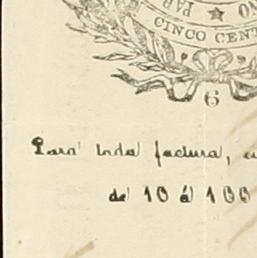 PAR
NO
CINCO CENT
6
Para toda factura, cu
de 10 á 100